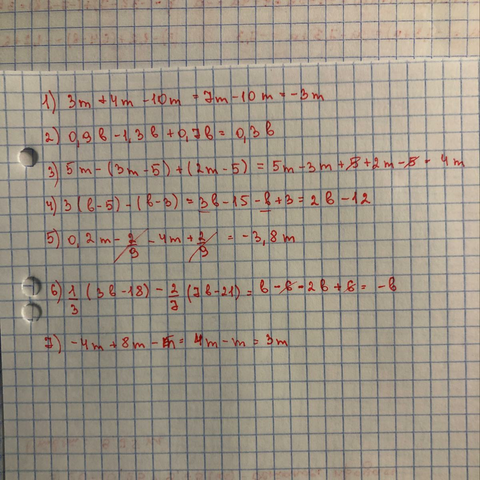 1) 3m + 4m - 10m = 7m - 10m = -3m
2) 0,9b - 1,3b + 0,7b = 0,3b
3) 5m - (3m - 5) + (2m - 5) = 5m - 3m + 5 + 2m - 5 = 4m
4) 3(b - 5) - (b - 3) = 3b - 15 - b + 3 = 2b - 12
5) 0,2m - 2/9 - 4m + 2/9 = -3,8m
6) 1/3 (3b - 18) - 2/7 (7b - 21) = b - 6 - 2b + 6 = -b
7) -4m + 8m - m = 4m - m = 3m